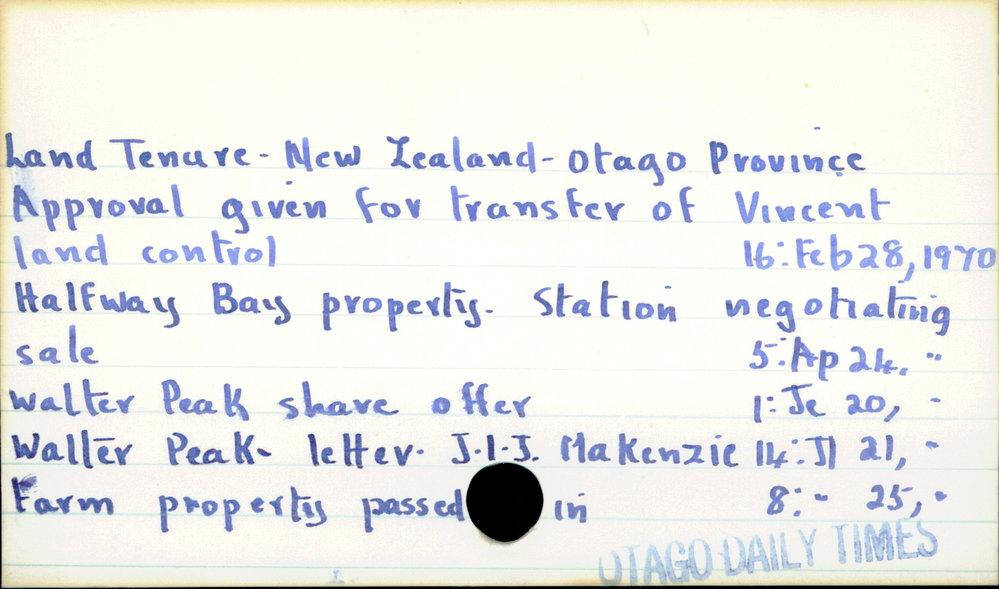 Land Tenure - New Zealand - Otago Province
Approval given for transfer of Vincent
land control 16: Feb 28, 1970
Halfway Bay property. Station negotiating
sale 5: Ap 24, "
Walter Peak share offer 1: Je 20, "
Walter Peak - letter. J.I.J. MaKenzie 14: Jl 21, "
Farm property passed in 8: " 25, "
OTAGO DAILY TIMES